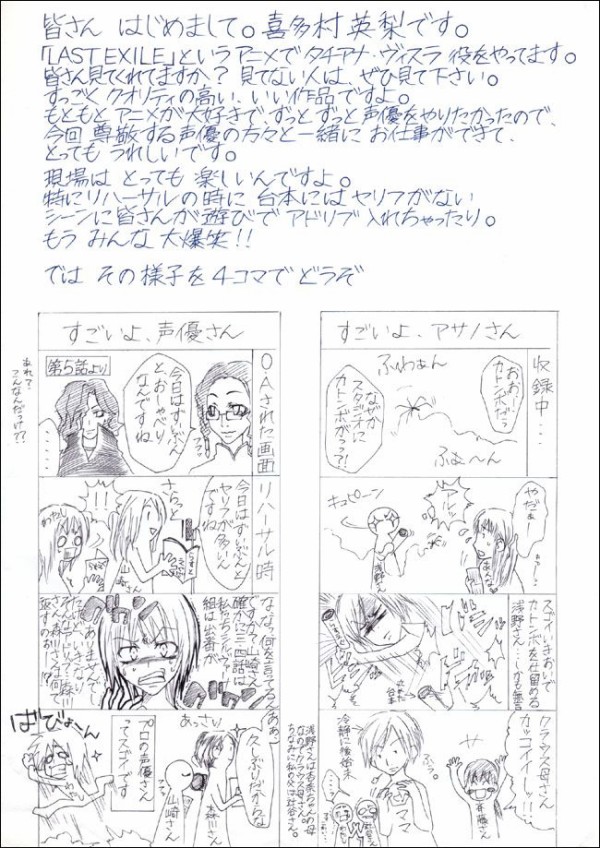 皆さん はじめまして。喜多村英梨です。
「LAST EXILE」というアニメでタチアナ・ヴィスラ 役をやってます。
皆さん見てくれてますか？ 見てない人は、ぜひ見て下さい。
すっごく クオリティの高い、いい作品ですよ。
もともと アニメが大好きで、ずっと ずっと声優をやりたかったので、
今回 尊敬する声優の方々と一緒に お仕事ができて、
とっても うれしいです。
現場は とっても 楽しいんですよ。
特にリハーサルの時に 台本には セリフがない
シーンに皆さんが遊びで アドリブ 入れちゃったり。
もう みんな 大爆笑！！
では その様子を 4コマで どうぞ
すごいよ、声優さん
O・Aされた画面
第5話より
今日はずいぶん
と、おしゃべり
なんですね
あれ？
こんなんだっけ？？
リハーサル時
さらっと
今日はずいぶんと
セリフが多いん
ですね
！！
山崎さん
なな、何を言ってるん
ですかぁ、山崎さん
確かに三、四話は
私たちシルヴァーナ
組は出番が
プロの声優さん
ってスゴイです
ばびょーん
あっさり
久しぶりだからな
森川さん
山崎さん
すごいよ、アサノさん
収録中…
ふわぁん
おお、
カトンボだぁ？
なぜか
スタジオに
カトンボがっ？！
ふぁ〜ん
やだぁー
キュピーン
浅野さん
スゴイいきおいで
カトンボを仕留める
浅野さん…しかも無言
台本
クラウス母さん
カッコイイーッ！！
冷静に後始末
ふぅ。
ママ
斉藤さん
浅野さんはお茶ちゃんの母
なの
ちなみに私の父は社谷さん。